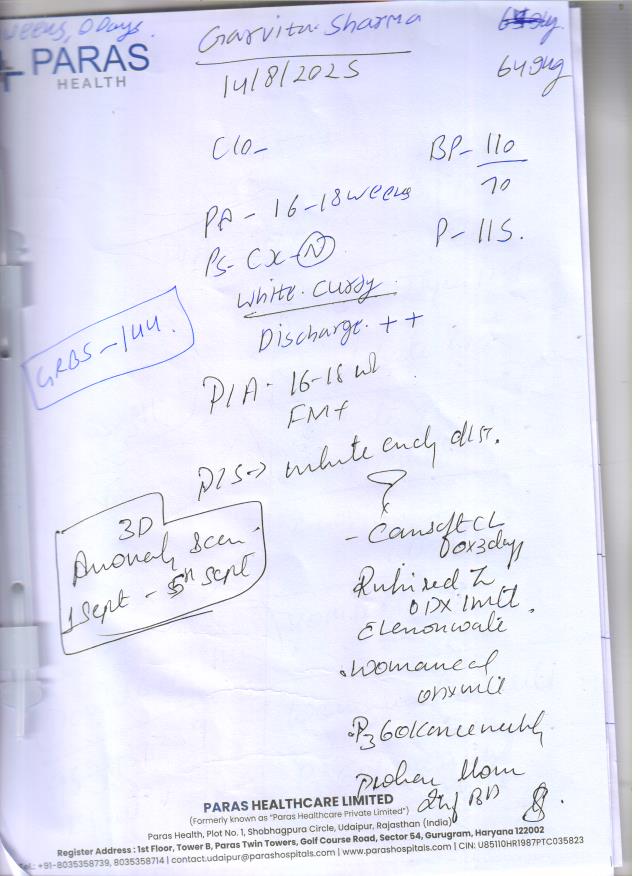 weeks, 0 Days.
Garvita Sharma
PARAS
HEALTH
14/8/2025
649kg
C/O-
BP- 110
70
PA - 16-18 weeks
P- 115.
PS- CX- N
White curdy
Discharge ++
GRBS-144.
P/A- 16-18 w
FM+
P/S-> white curdy dis.
3D
Anomaly Scan
1 Sept - 5th Sept
- Cansoft CL
OD x 3days
OD x 1 mth
.
. P3 60K once
2tsf BD
PARAS HEALTHCARE LIMITED
(Formerly known as "Paras Healthcare Private Limited")
Paras Health, Plot No. 1, Shobhagpura Circle, Udaipur, Rajasthan (India)
Register Address : 1st Floor, Tower B, Paras Twin Towers, Golf Course Road, Sector 54, Gurugram, Haryana 122002
Tel.: +91-8035358739, 8035358714 | contact.udaipur@parashospitals.com | www.parashospitals.com | CIN: U85110HR1987PTC035823